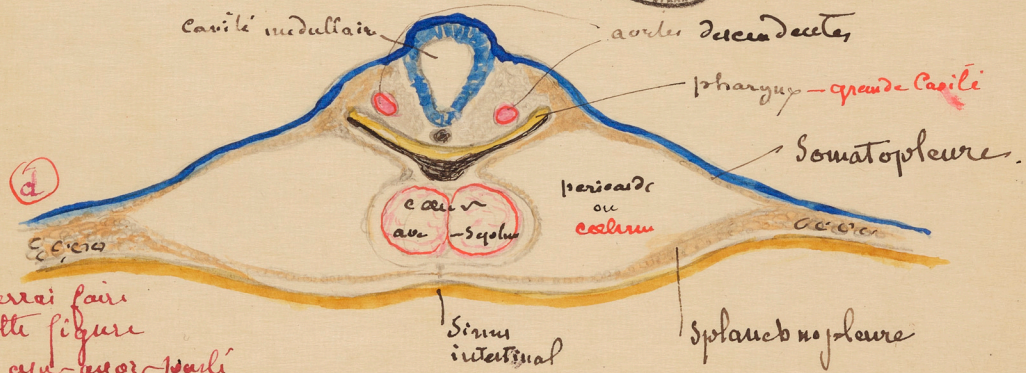 cavité médullair
aortes descendentes
pharynx — grande Cavité
Somatopleure.
d
pericarde
ou
cœlum
cœur
avec — Septum
Sinus
intestinal
Splanchnopleure
errai faire
tte figure